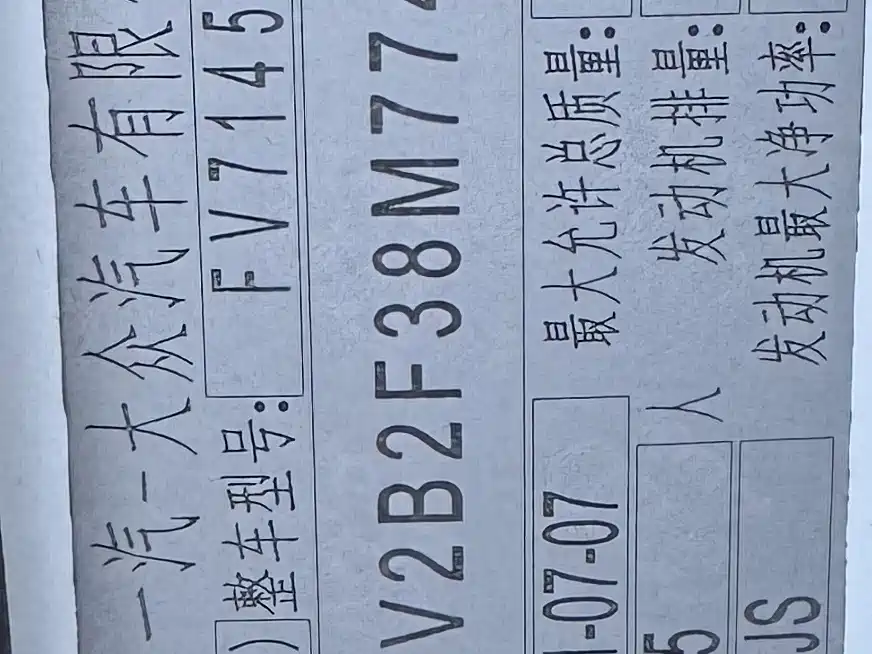 一汽-大众汽车有限
) 整车型号: FV7145
V2B2F38M77
-07-07 最大允许总质量:
5 人 发动机排量:
JS 发动机最大净功率: